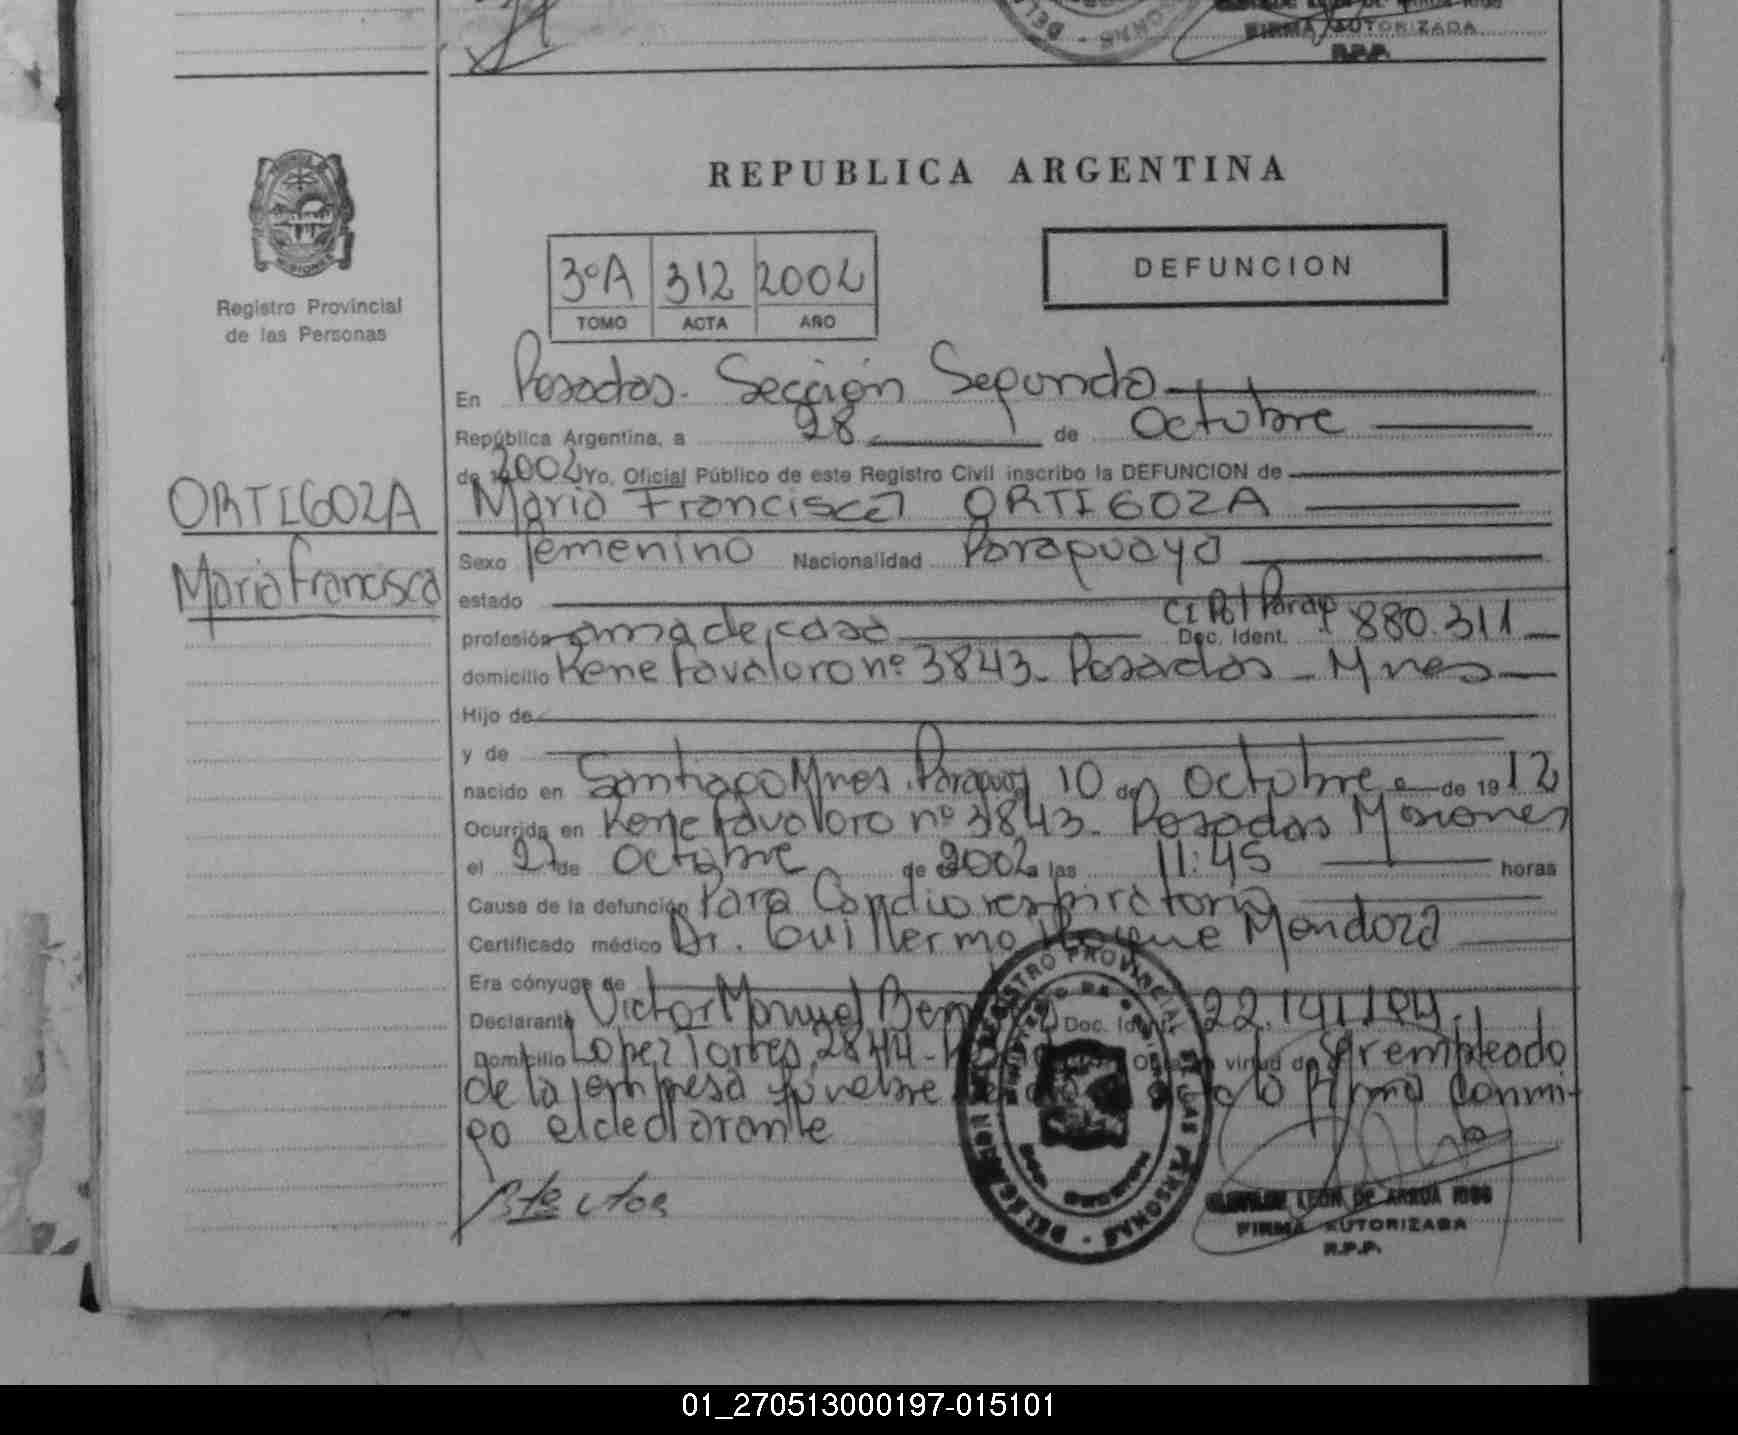 FIRMA AUTORIZADA
R.P.P.
REPUBLICA ARGENTINA
3ºA 312 2002
TOMO ACTA AÑO
DEFUNCION
Registro Provincial
de las Personas
En Posadas. Sección Segunda
República Argentina, a 28 de Octubre
de 2002 Yo, Oficial Público de este Registro Civil inscribo la DEFUNCION de
Maria Francisca ORTIGOZA
ORTIGOZA
Maria Francisca
Sexo femenino Nacionalidad Paraguaya
estado
profesión ama de casa Doc. Ident. CI Pol Parag 880.311
domicilio Rene Favaloro nº 3843 - Posadas - Mnes
Hijo de
y de
nacido en Santiago Mnes. Paraguay 10 de Octubre de 1912
Ocurrida en Rene Favaloro nº 3843 - Posadas Misiones
el 27 de Octubre de 2002 a las 11:45 horas
Causa de la defunción Paro Cardiorespiratorio
Certificado médico Dr. Guillermo Roque Mendoza
Era cónyuge de
Declarante Victor Manuel Doc. Ident. 22.141.104
Domicilio Lopez Torres 2844 - Obra en virtud de Ser empleado
de la empresa funebre firma conmi-
go el declarante
LEON DE ARRUA
FIRMA AUTORIZADA
R.P.P.
REGISTRO PROVINCIAL DE LAS PERSONAS - DELEGACION
01_270513000197-015101